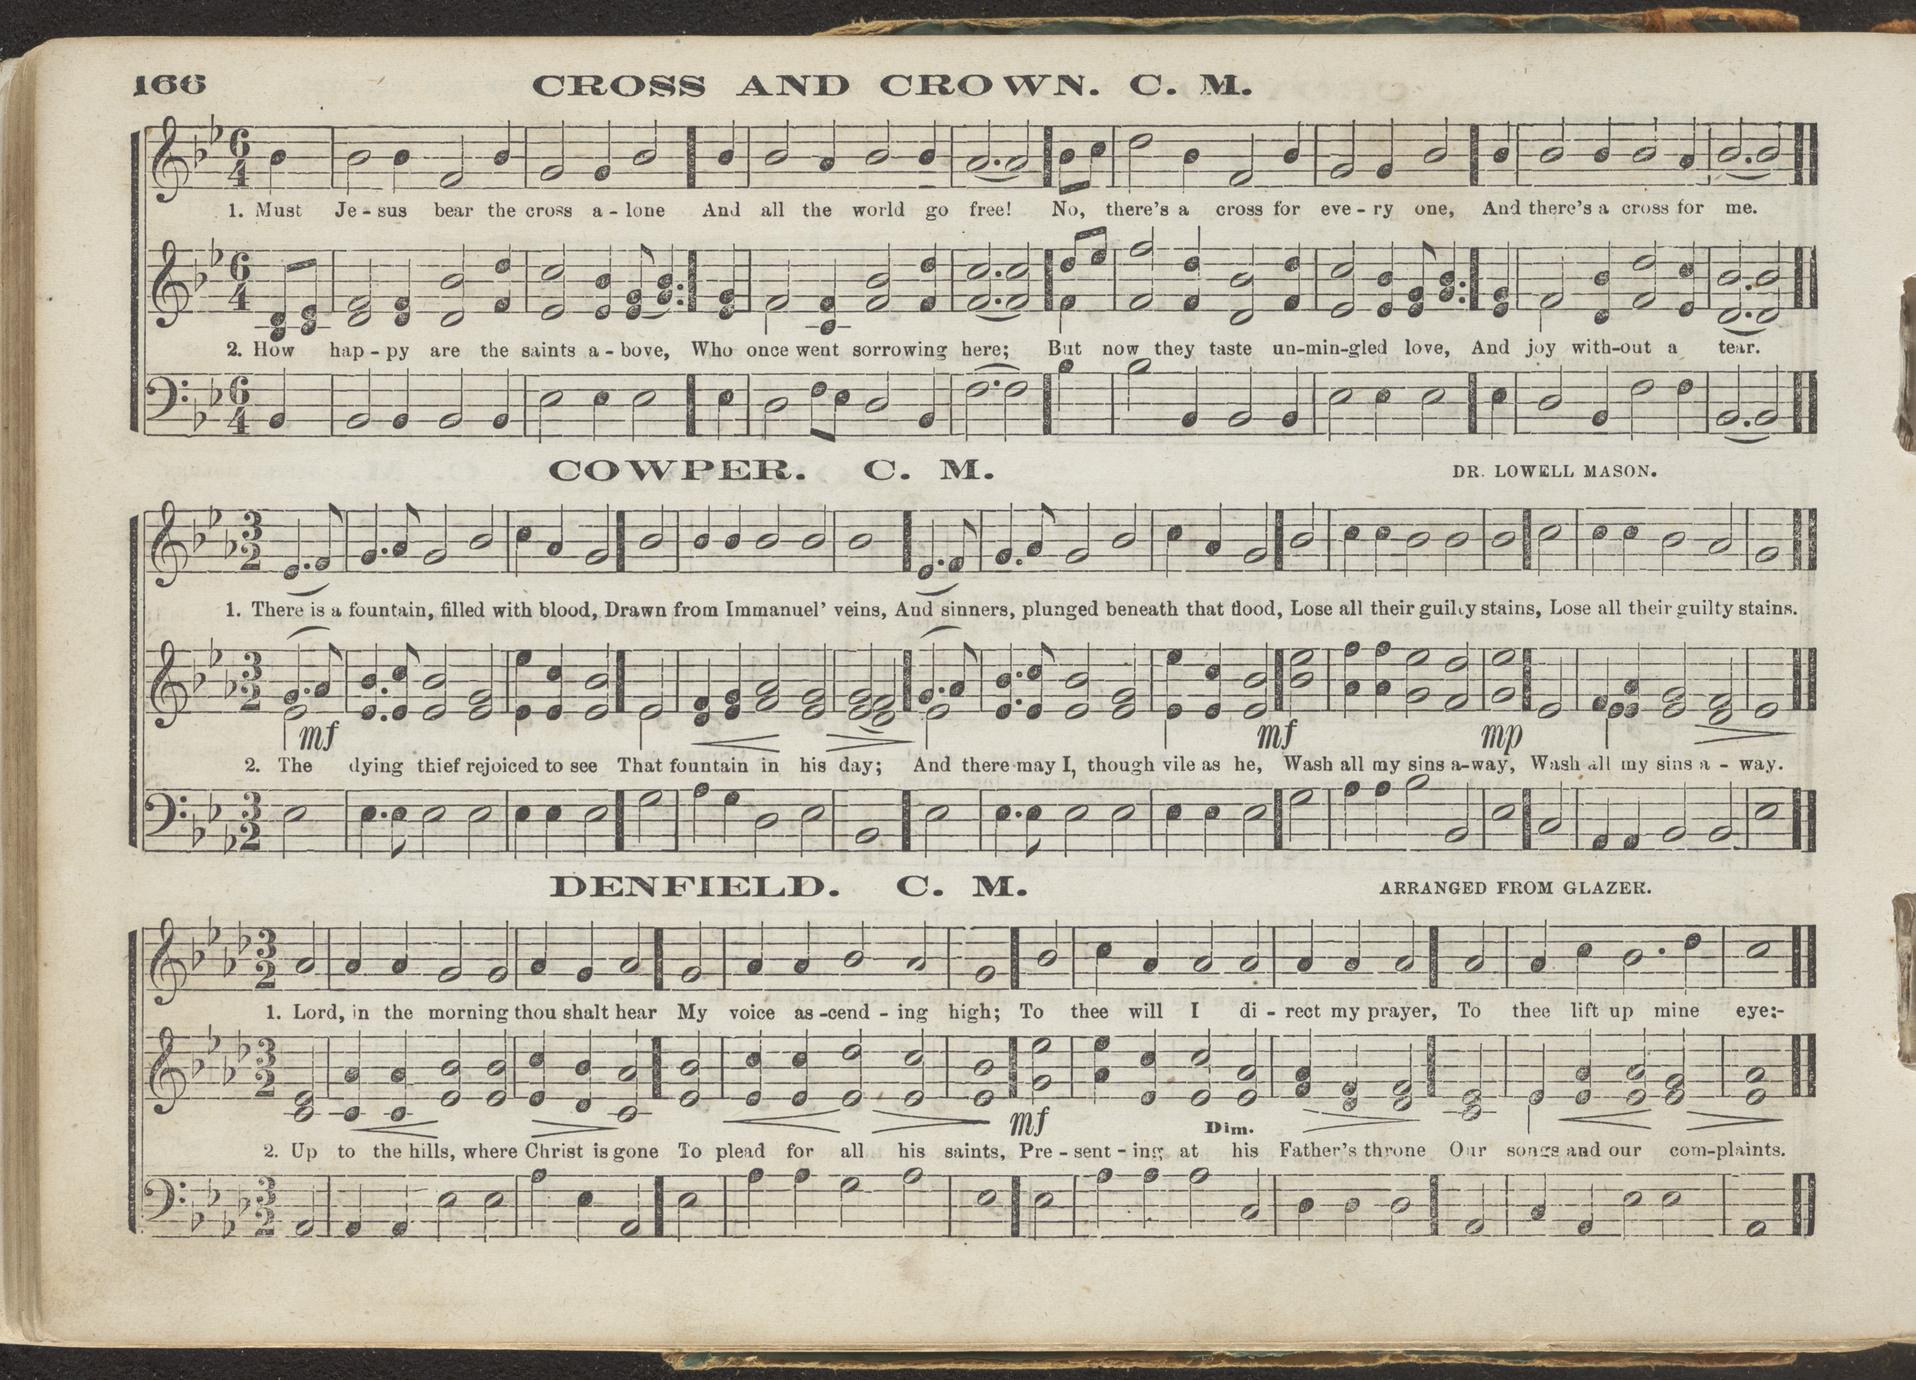 166
CROSS AND CROWN. C. M.
1. Must Je - sus bear the cross a - lone And all the world go free! No, there's a cross for eve - ry one, And there's a cross for me.
2. How hap - py are the saints a - bove, Who once went sorrowing here; But now they taste un-min-gled love, And joy with-out a tear.
COWPER. C. M.
DR. LOWELL MASON.
1. There is a fountain, filled with blood, Drawn from Immanuel' veins, And sinners, plunged beneath that flood, Lose all their guilty stains, Lose all their guilty stains.
mf mf mp
2. The dying thief rejoiced to see That fountain in his day; And there may I, though vile as he, Wash all my sins a-way, Wash all my sins a - way.
DENFIELD. C. M.
ARRANGED FROM GLAZER.
1. Lord, in the morning thou shalt hear My voice as -cend - ing high; To thee will I di - rect my prayer, To thee lift up mine eye:-
mf Dim.
2. Up to the hills, where Christ is gone To plead for all his saints, Pre - sent - ing at his Father's throne Our songs and our com-plaints.